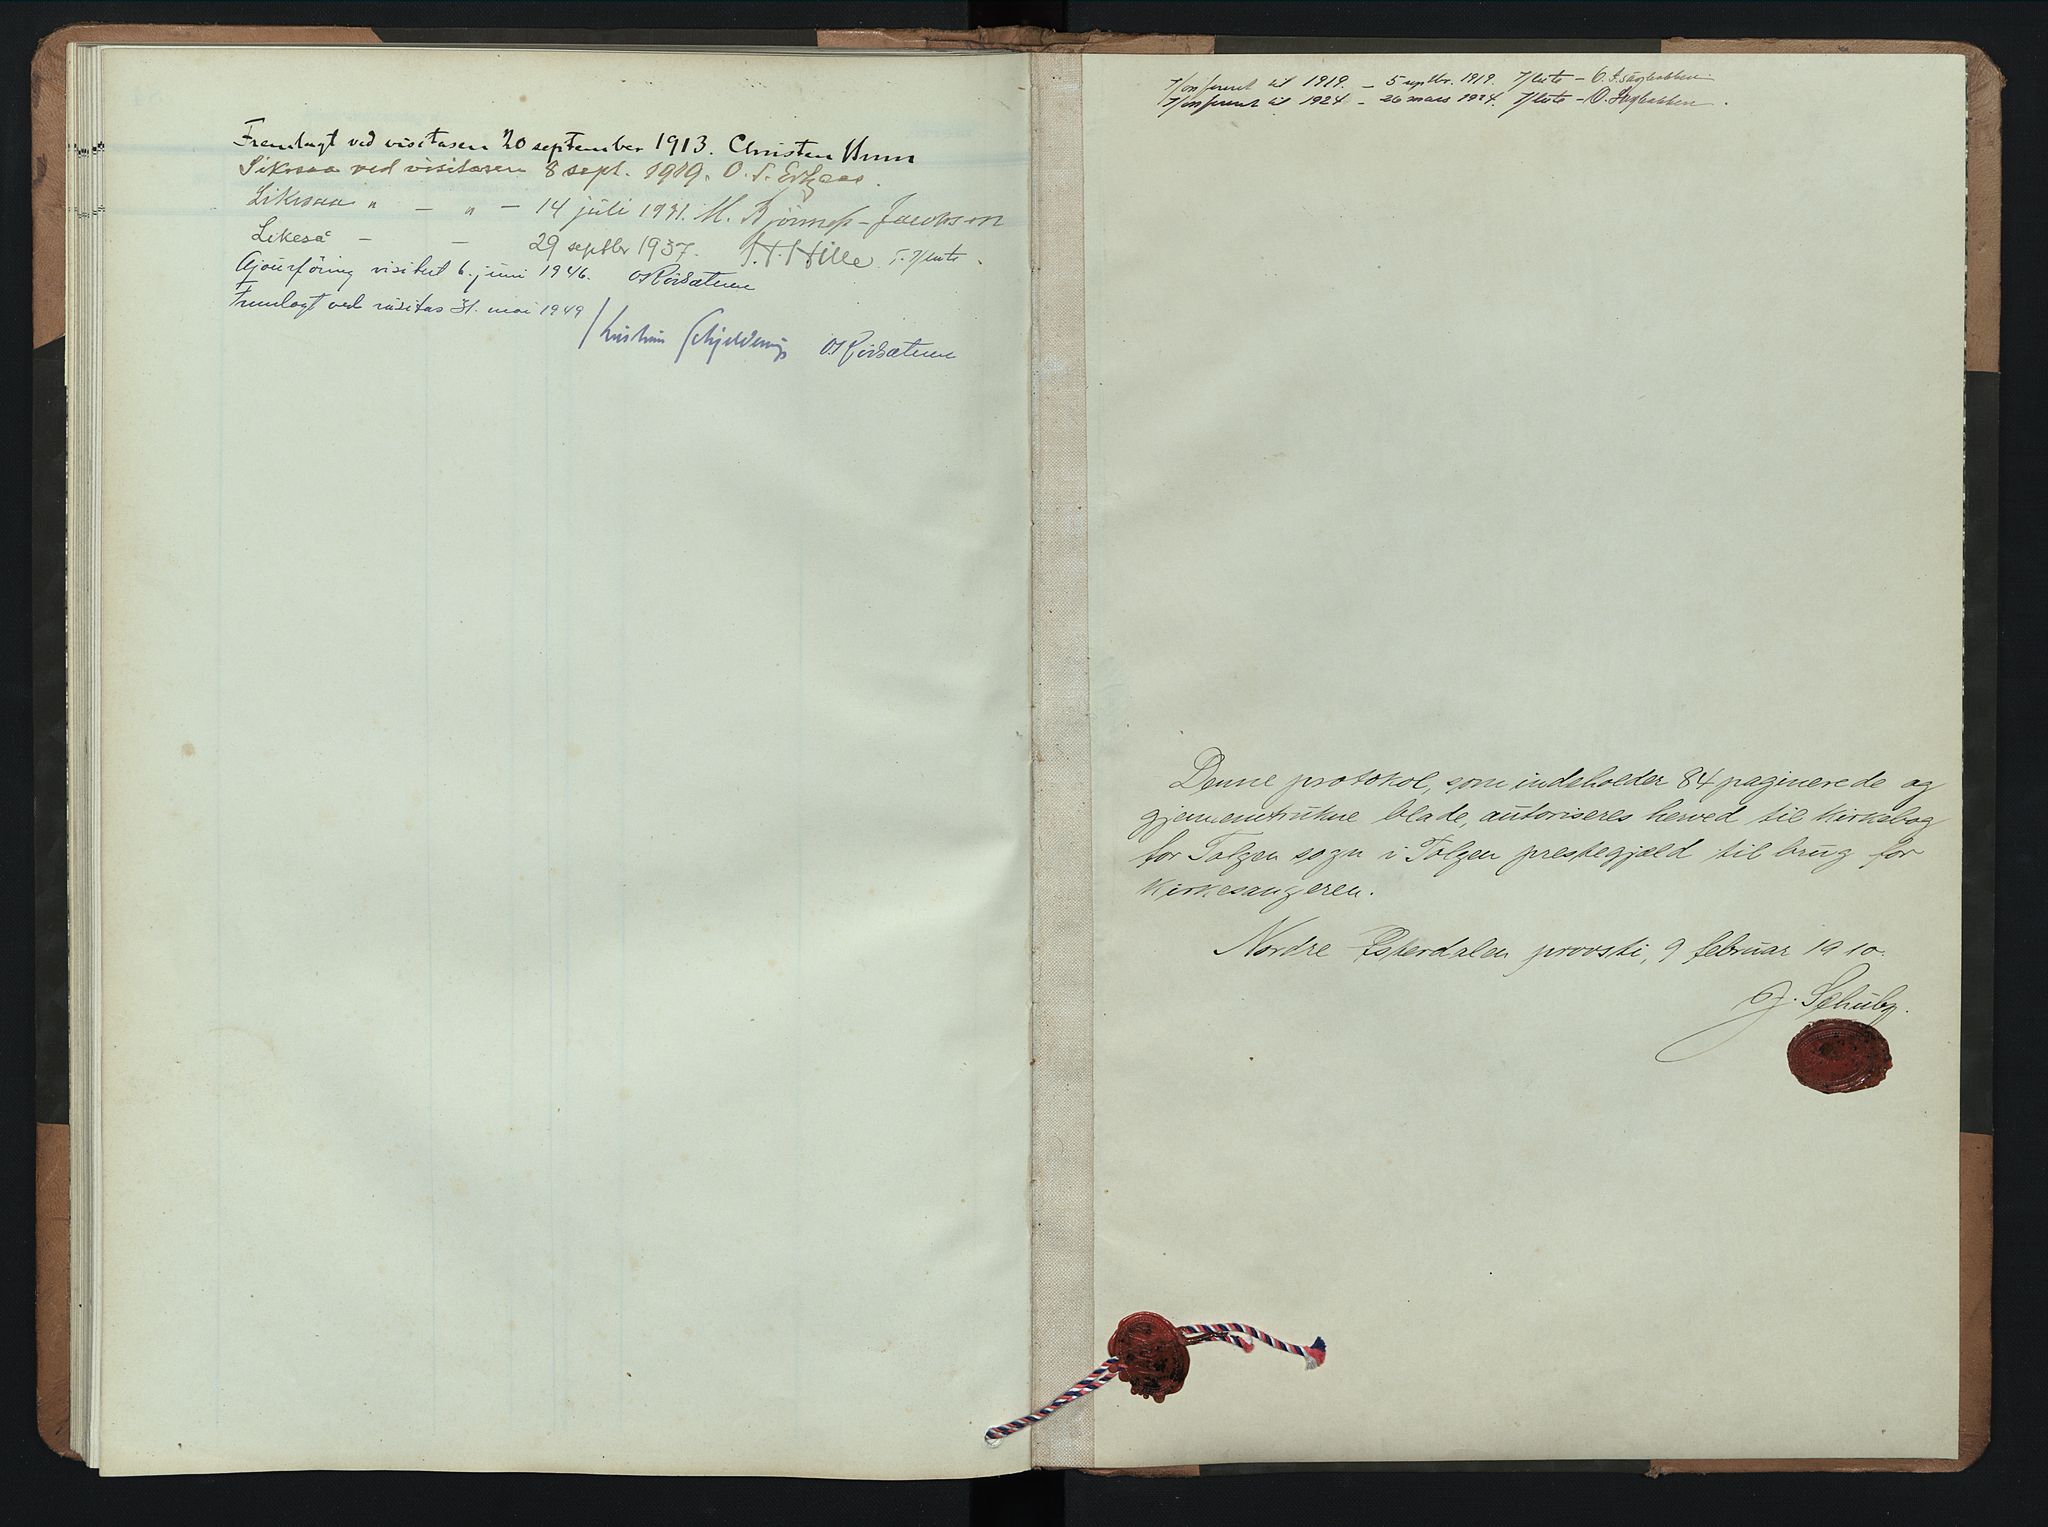 Fremlagt ved visitasen 20 september 1913. Christen Brun
Likesaa ved visitasen 8 sept. 1919. O. S.
Likesaa " — " — 14 juli 1931. M. Bjønnes-Jacobsen
Likeså — — 29 septbr 1937. H. Hille
Ajourføring visitert 6. juni 1946. O Röisætum
Fremlagt ved visitas 31. mai 1949
Kristian Schjelderup O Röisætum
Konferert til 1919. — 5 septbr. 1919. O.
Konferert til 1924 — 26 mars 1924. O.
Denne protokol, som indeholder 84 paginerede og
gjennemtrukne blade, autoriseres herved til kirkebog
for Tolgen sogn i Tolgen prestegjæld til brug for
kirkesangeren.
Nordre Østerdalen provsti, 9 februar 1910.